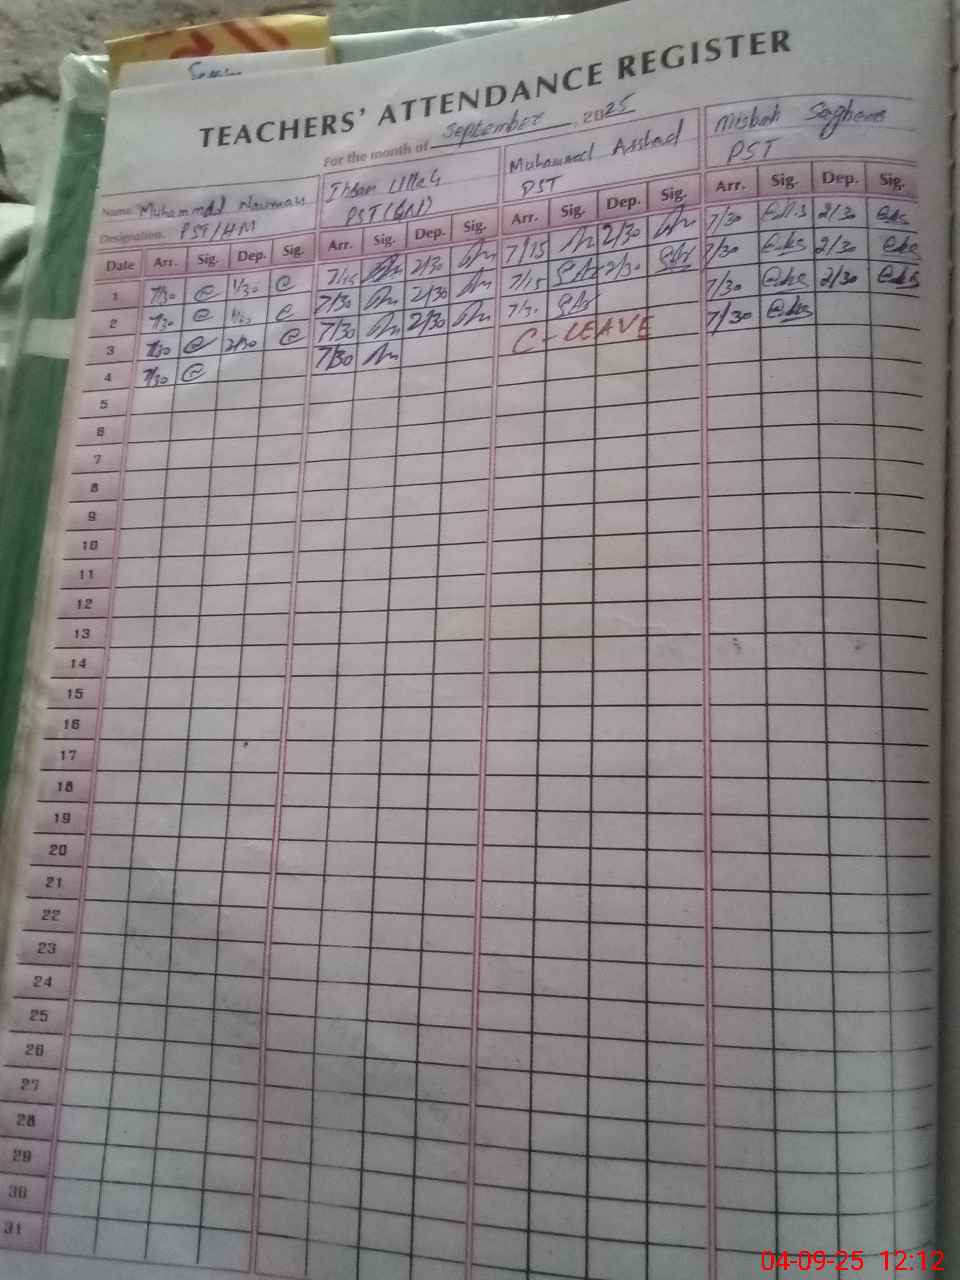 TEACHERS' ATTENDANCE REGISTER
For the month of September, 2025
Name: Muhammad Nouman
Designation. PST/HM
Ihsan Ullah
PST
Muhammad Asshad
PST
Misbah Sagheer
PST
Date Arr. Sig. Dep. Sig. Arr. Sig. Dep. Sig. Arr. Sig. Dep. Sig. Arr. Sig. Dep. Sig.
1 7/30 1/30 7/15 2/30 7/15 2/30 7/30 2/30
2 7/30 1/30 7/30 2/30 7/15 2/30 7/30 2/30
3 7/30 2/30 7/30 2/30 7/30 7/30 2/30
4 7/30 7/30 C-LEAVE 7/30
5
6
7
8
9
10
11
12
13
14
15
16
17
18
19
20
21
22
23
24
25
26
27
28
29
30
31
04-09-25 12:12